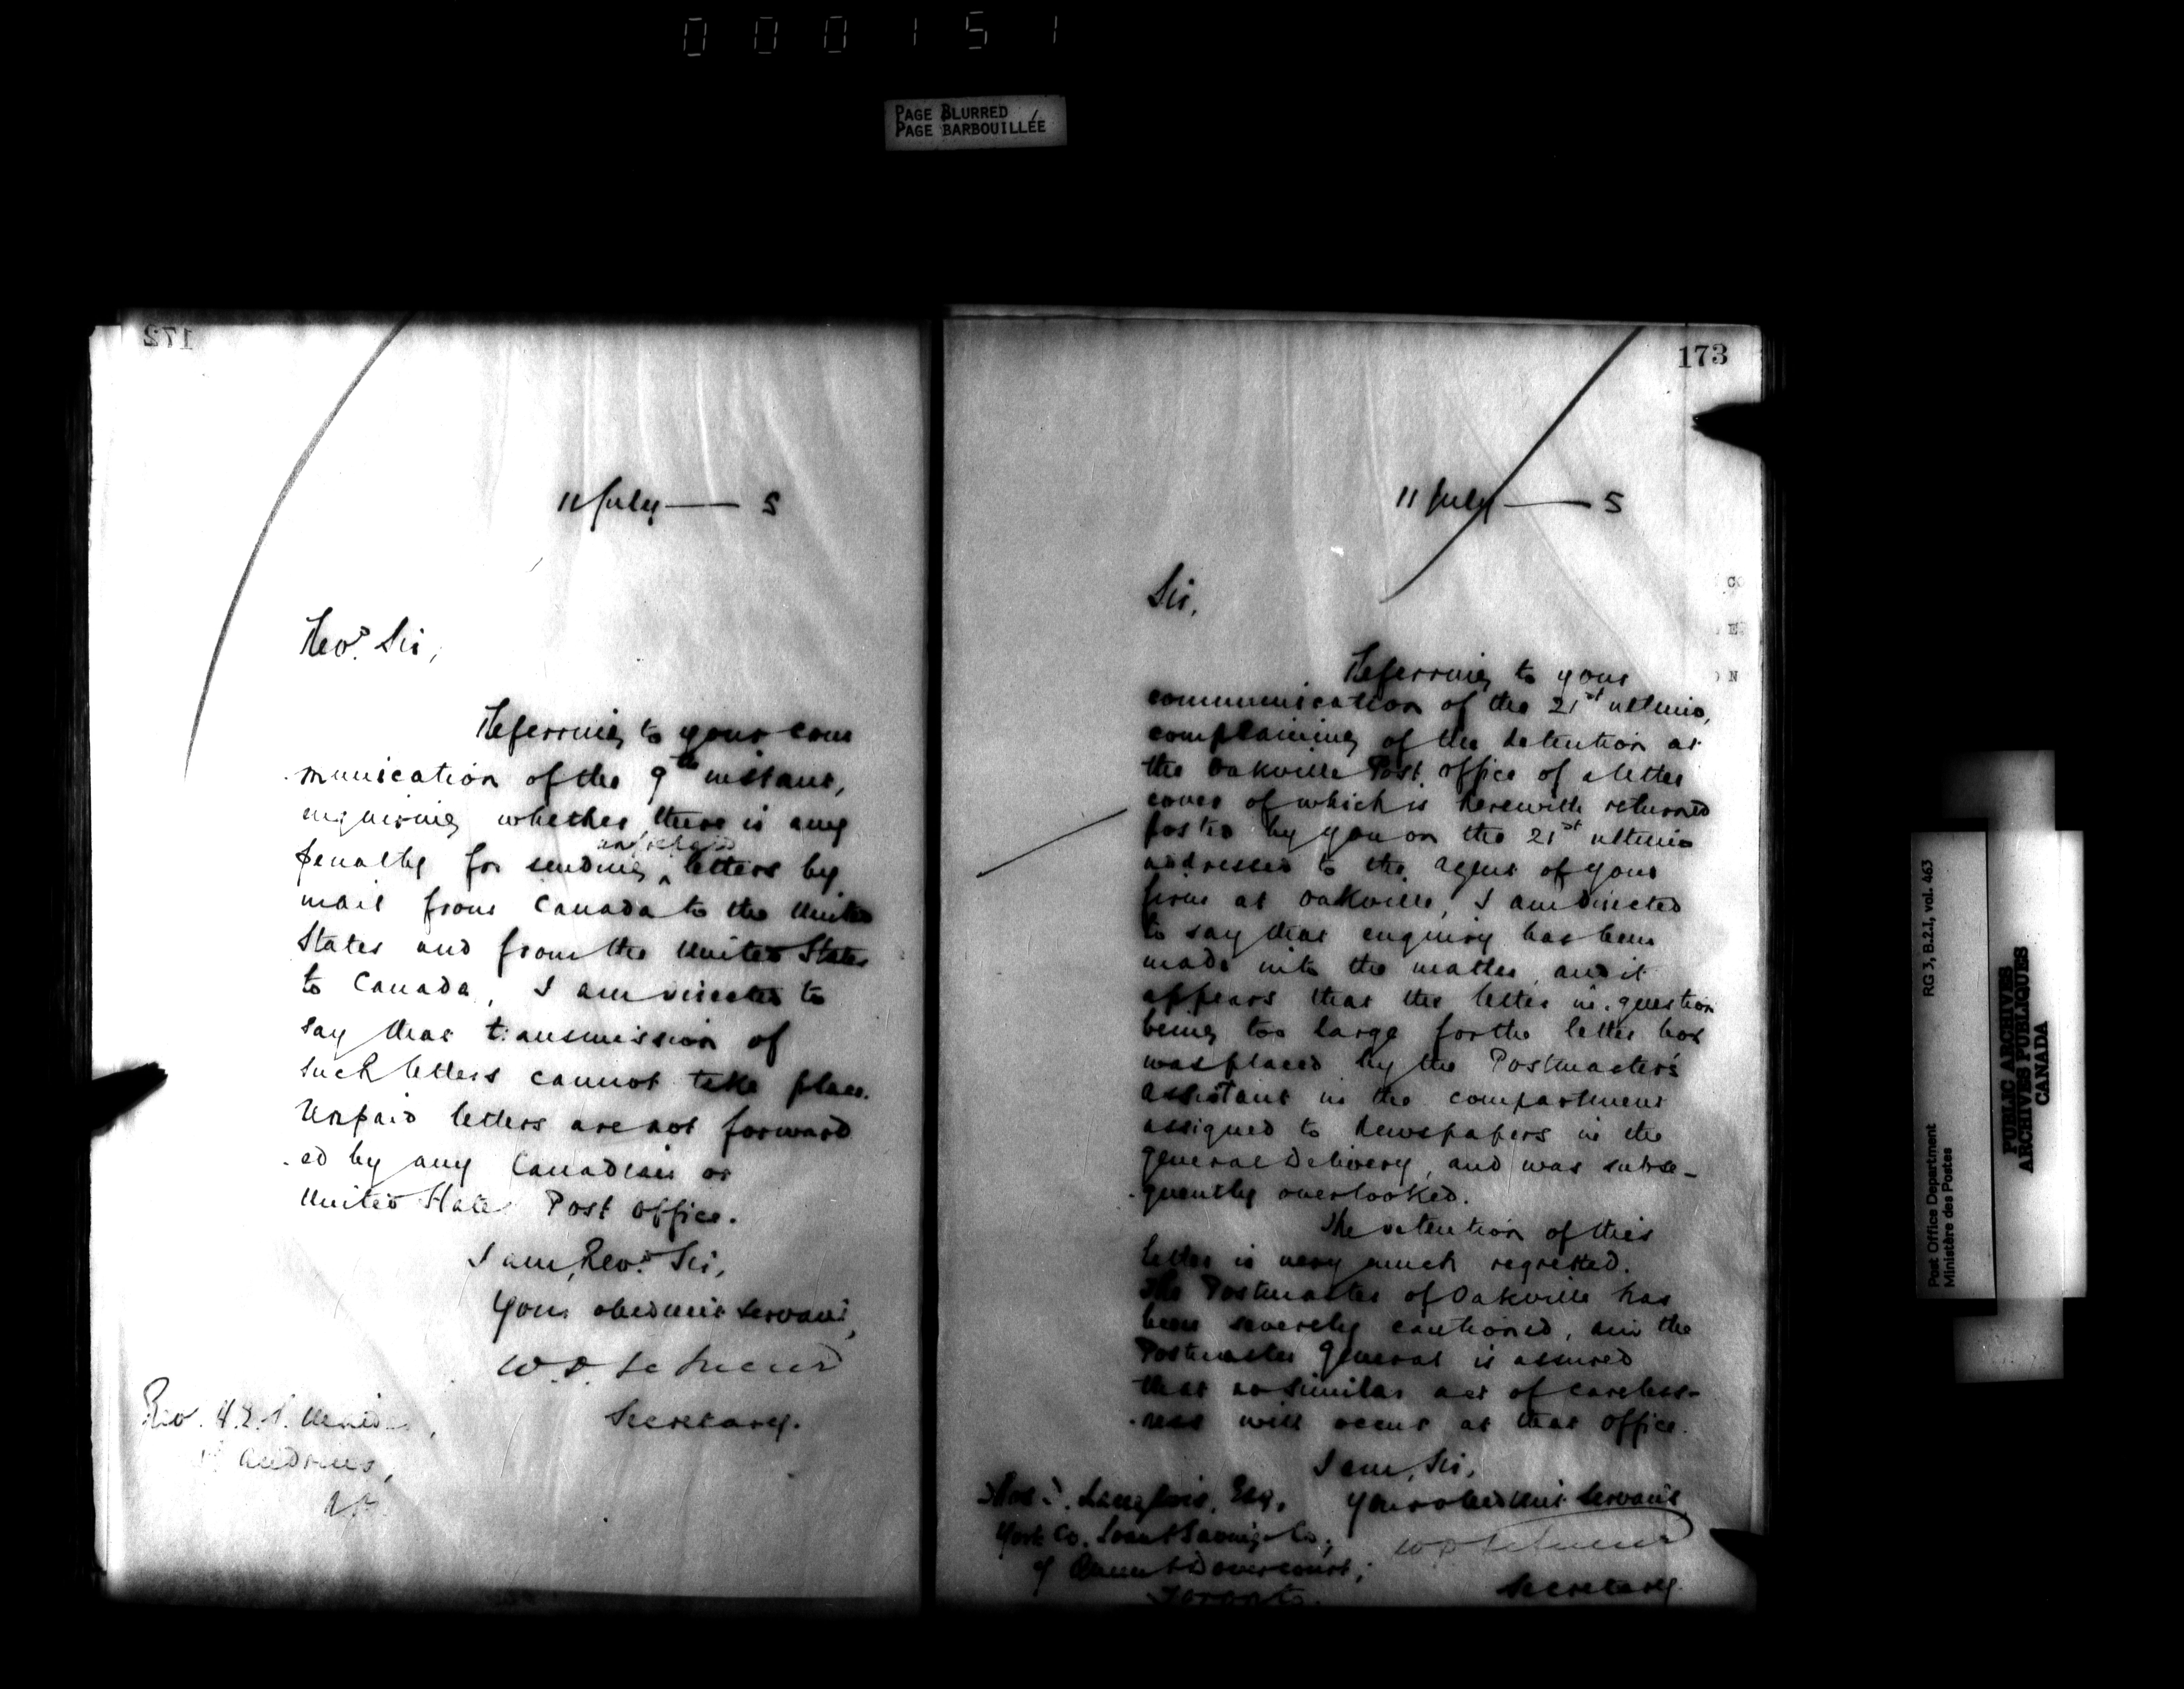 000151
PAGE BLURRED
PAGE BARBOUILLÉE
172
11 July — 5
Revd. Sir,
Referring to your com
munication of the 9th instant,
enquiring whether there is any
penalty for sending letters by
mail from Canada to the United
States and from the United States
to Canada, I am directed to
say that transmission of
such letters cannot take place.
Unpaid letters are not forward
-ed by any Canadian or
United States Post Office.
I am, Revd. Sir,
Your obedient Servant,
Secretary.
Rev. H.
St. Andrews,
173
11 July — 5
Sir,
Referring to your
communication of the 21st ultimo,
complaining of the detention at
the Oakville Post Office of a letter
cover of which is herewith returned
posted by you on the 21st ultimo
addressed to the agent of your
firm at Oakville, I am directed
to say that enquiry has been
made into the matter, and it
appears that the letter in question
being too large for the letter box
was placed by the Postmaster's
assistant in the compartment
assigned to newspapers in the
general Delivery, and was subse-
-quently overlooked.
The detention of this
letter is very much regretted.
The Postmaster of Oakville has
been severely cautioned, and the
Postmaster General is assured
that no similar act of careless-
-ness will occur at that office.
I am, Sir,
Your obedient Servant,
Secretary.
Langlois, Esq.
York Co. Loan & Savings Co.,
Toronto.
RG 3, B.2.1, vol. 463
Post Office Department
Ministère des Postes
PUBLIC ARCHIVES
ARCHIVES PUBLIQUES
CANADA